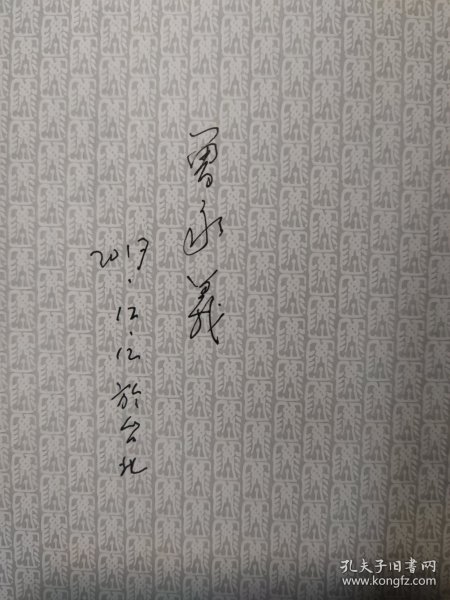 曾永義
2017.12.12於台北
孔夫子旧书网
www.kongfz.com